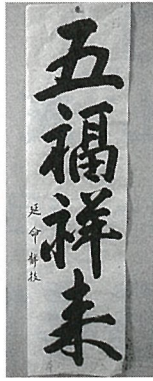 五福祥来
延命靜枝